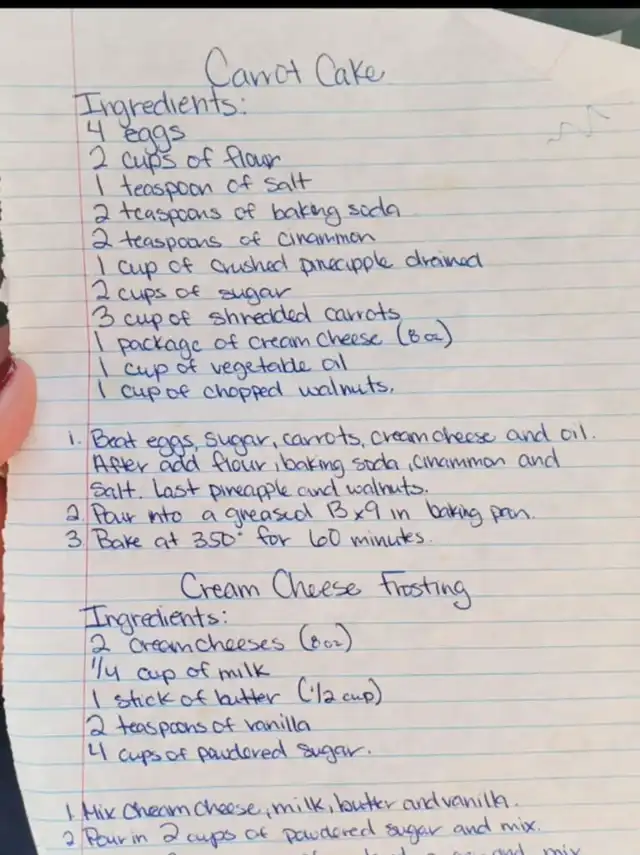 Carrot Cake
Ingredients:
4 eggs
2 cups of flour
1 teaspoon of salt
2 teaspoons of baking soda
2 teaspoons of cinammon
1 cup of crushed pineapple drained
2 cups of sugar
3 cup of shredded carrots
1 package of cream cheese (8 oz)
1 cup of vegetable oil
1 cup of chopped walnuts.
1. Beat eggs, sugar, carrots, creamcheese and oil.
After add flour, baking soda, cinammon and
salt. Last pineapple and walnuts.
2. Pour into a greased 13x9 in baking pan.
3 Bake at 350° for 60 minutes.
Cream Cheese Frosting
Ingredients:
2 creamcheeses (8oz)
1/4 cup of milk
1 stick of butter (1/2 cup)
2 teaspoons of vanilla
4 cups of powdered sugar.
1 Mix cheam cheese, milk, butter and vanilla.
2 Pour in 2 cups of powdered sugar and mix.
and mix